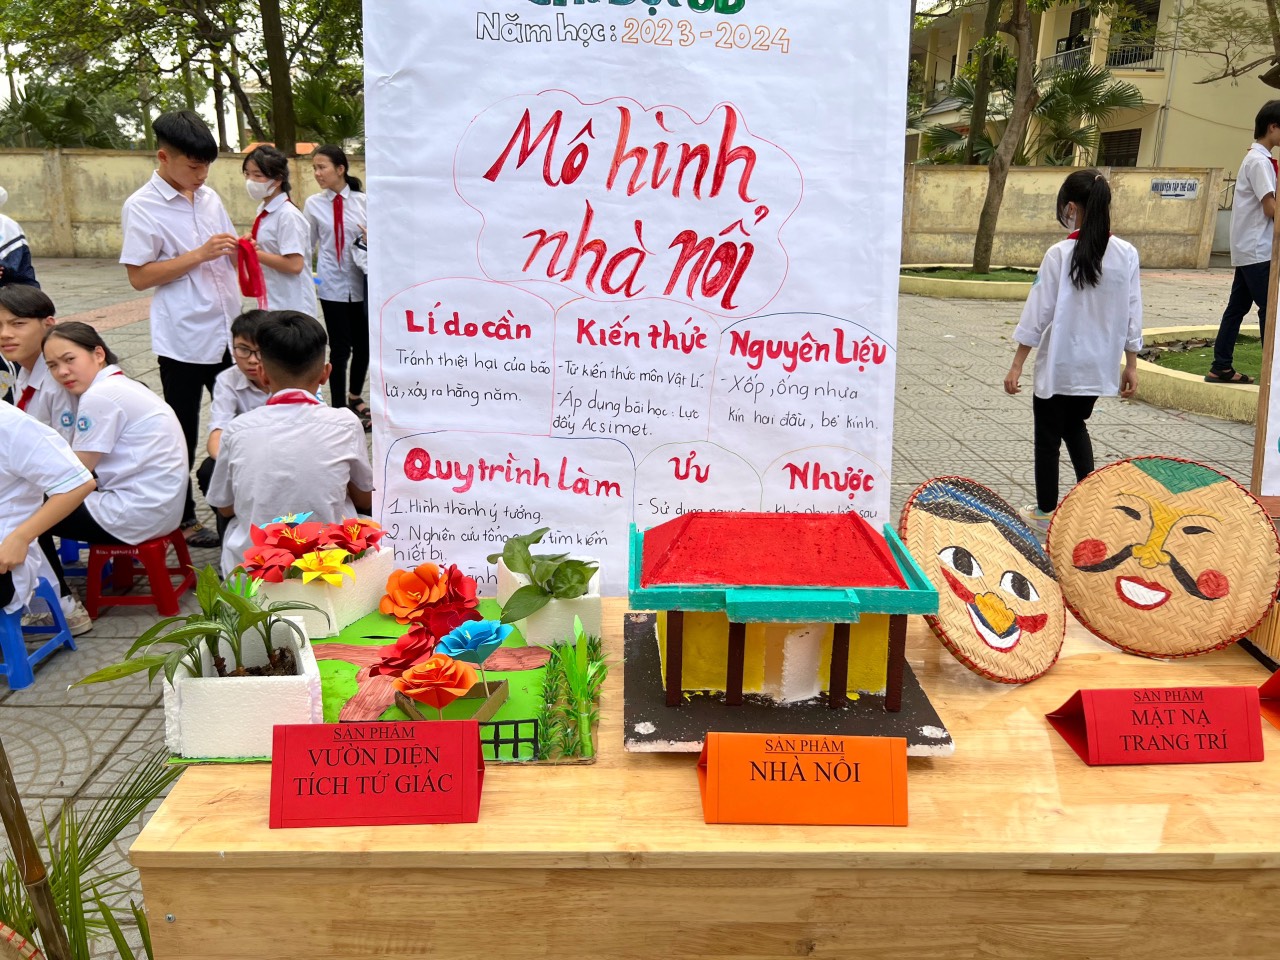 Năm học: 2023-2024
Mô hình
nhà nổi
Lí do cần
Tránh thiệt hại của bão
lũ, xảy ra hằng năm.
Kiến thức
- Từ kiến thức môn Vật Lí.
- Áp dụng bài học: Lực
đẩy Acsimet.
Nguyên Liệu
- Xốp, ống nhựa
kín hai đầu, bể kính.
Quy trình làm
1. Hình thành ý tưởng.
2. Nghiên cứu tổng tìm kiếm
thiết bị.
Ưu
- Sử dụng
Nhược
- Khó sau
KHU LUYỆN TẬP THỂ CHẤT
SẢN PHẨM
VƯỜN DIỆN
TÍCH TỨ GIÁC
SẢN PHẨM
NHÀ NỔI
SẢN PHẨM
MẶT NẠ
TRANG TRÍ